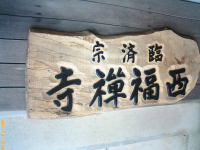 臨済宗
西福禅寺